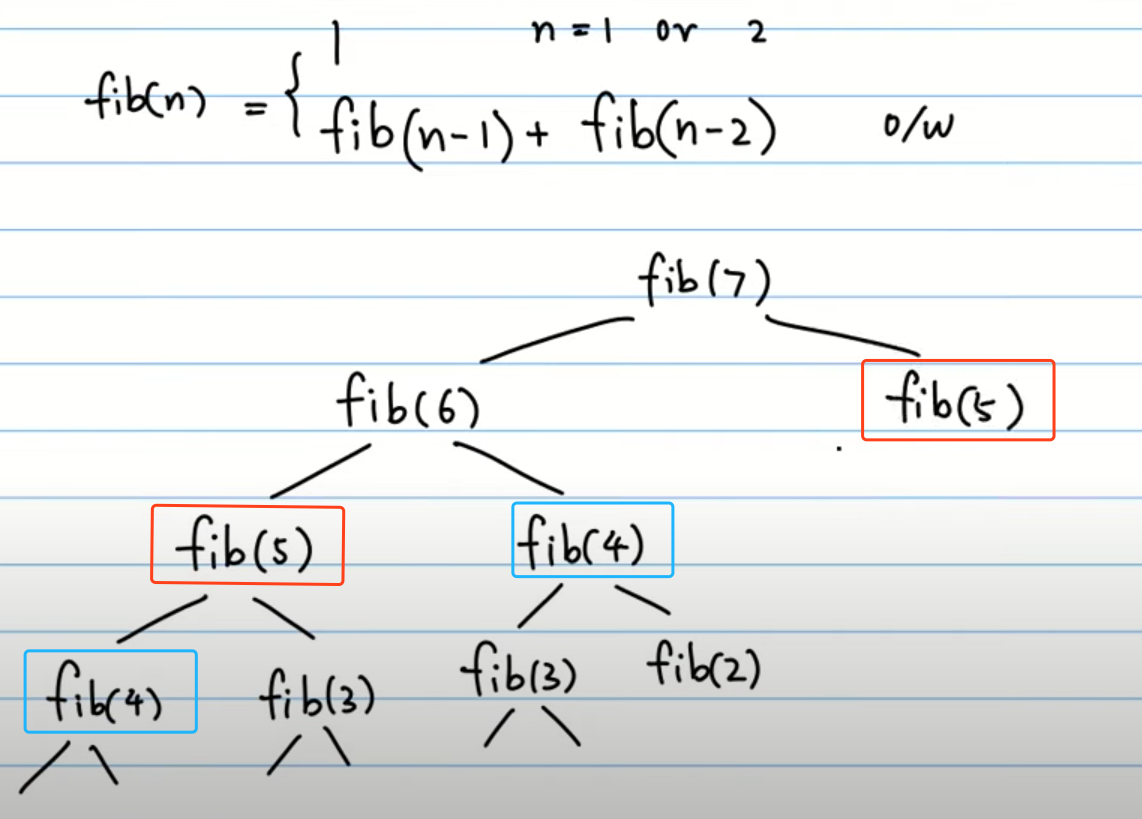 1 n = 1 or 2
fib(n) = { fib(n-1) + fib(n-2) o/w
fib(7)
fib(6) fib(5)
fib(5) fib(4)
fib(4) fib(3) fib(3) fib(2)